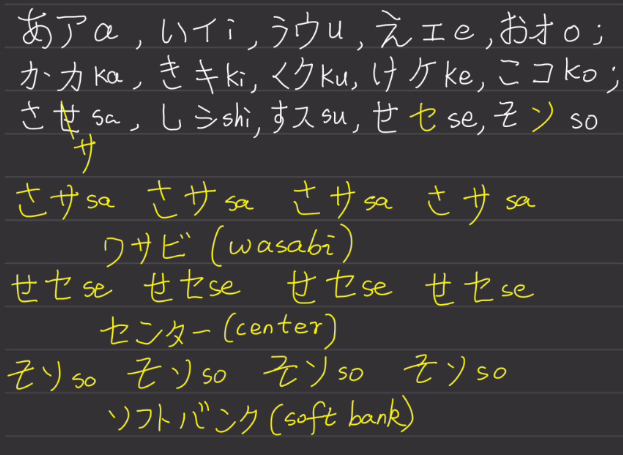 あアa, いイi, うウu, えエe, おオo;
かカka, きキki, くクku, けケke, こコko;
させsa, しシshi, すスsu, せセse, そソso
サ
さサsa さサsa さサsa さサsa
ワサビ (wasabi)
せセse せセse せセse せセse
センター (center)
そソso そソso そソso そソso
ソフトバンク (soft bank)